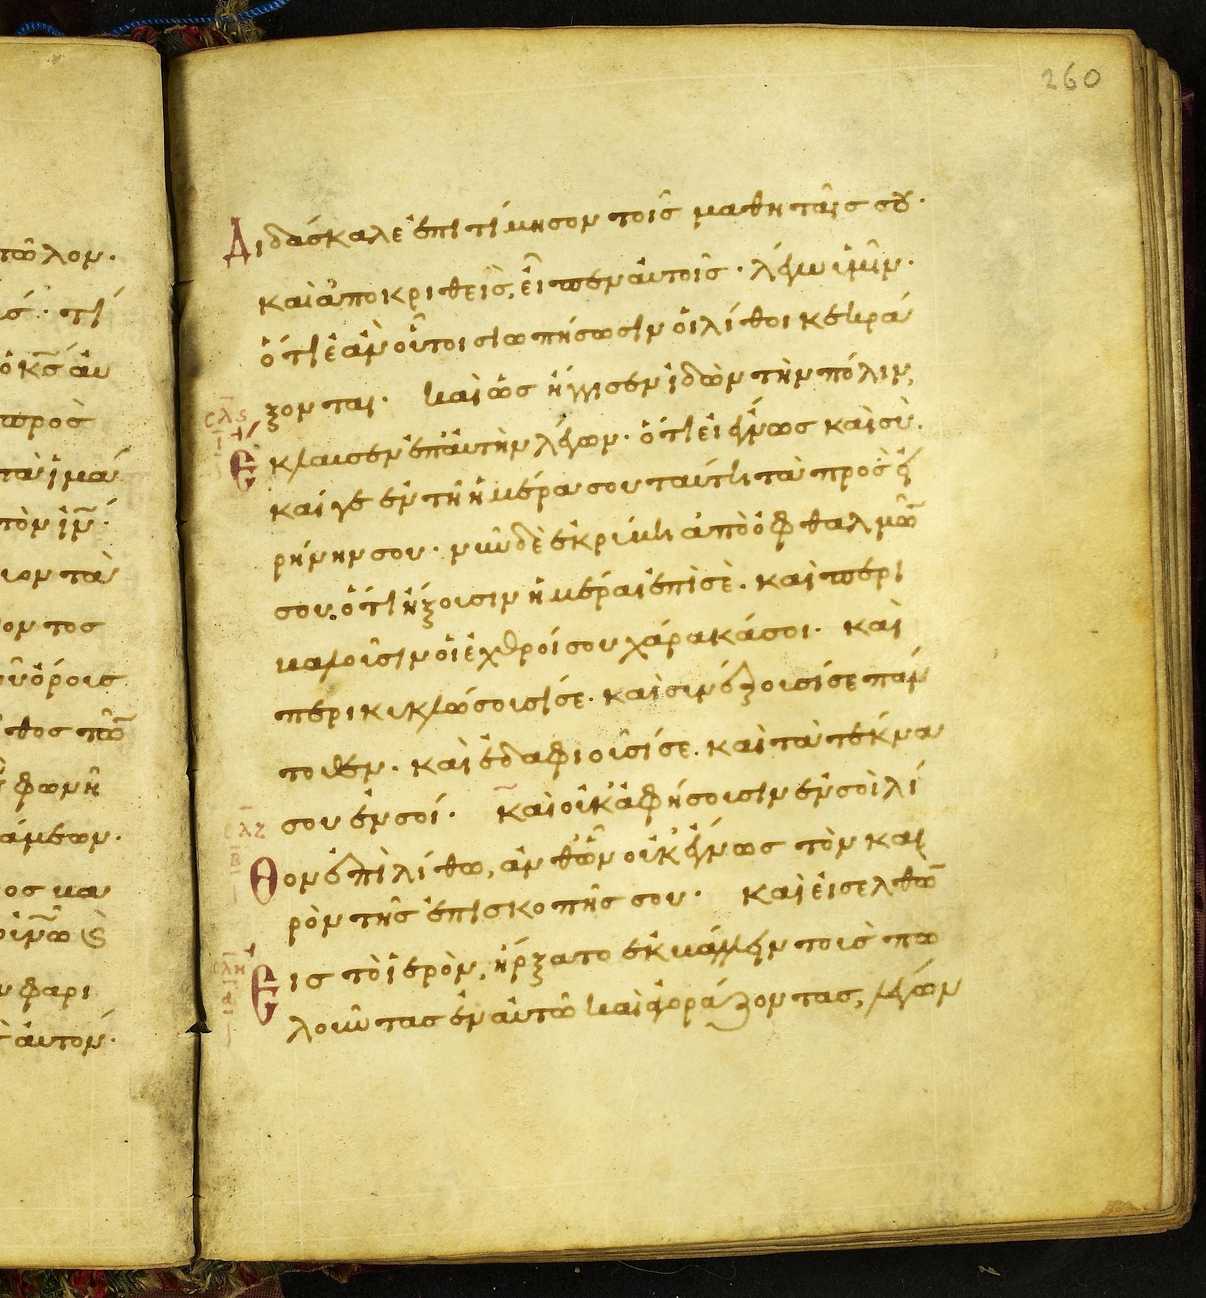 260
Διδάσκαλε ἐπιτίμησον τοῖς μαθηταῖς σου·
καὶ ἀποκριθεὶς, εἶπεν αὐτοῖς· λέγω ὑμῖν·
ὅτι ἐὰν οὗτοι σιωπήσωσιν οἱ λίθοι κεκρά
ξονται· καὶ ὡς ἤγγισεν ἰδὼν τὴν πόλιν,
ἔκλαυσεν ἐπ' αὐτὴν λέγων· ὅτι εἰ ἔγνως καὶ σὺ.
καί γε ἐν τῆ ἡμέρα σου ταύτη τὰ πρὸς εἰ
ρήνην σου· νῦν δὲ ἐκρύβη ἀπὸ ὀφθαλμῶ
σου. ὅτι ἥξουσιν ἡμέραι ἐπὶ σὲ. καὶ περι
βαλοῦσιν οἱ ἐχθροί σου χάρακά σοι· καὶ
περικυκλώσουσί σε· καὶ συνέξουσί σε πάν
τοθεν· καὶ ἐδαφιοῦσί σε. καὶ τὰ τέκνα
σου ἐν σοί· καὶ οὐκ ἀφήσουσιν ἐν σοὶ λί
θον ἐπὶ λίθω, ἀνθ' ὧν οὐκ ἔγνως τὸν και
ρὸν τῆς ἐπισκοπῆς σου· καὶ εἰσελθὼ
εἰς τὸ ἱερὸν, ἤρξατο ἐκβάλλειν τοὺς πω
λοῦντας ἐν αὐτῶ καὶ ἀγοράζοντας, λέγων